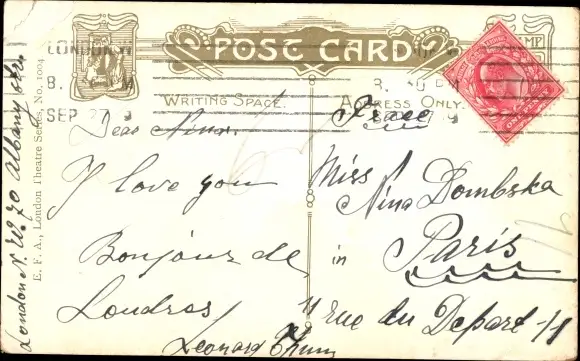 POST CARD
LONDON.W
8. PM
SEP 27
WRITING SPACE.
ADDRESS ONLY.
E. F. A., London Theatre Series, No. 1004
London N. W. 70 Albany str.
Dear Nina.
I love you
Bonjour de
Londres
Leonard
France
Miss
Nina Dombska
in Paris
11 rue du Depart 11